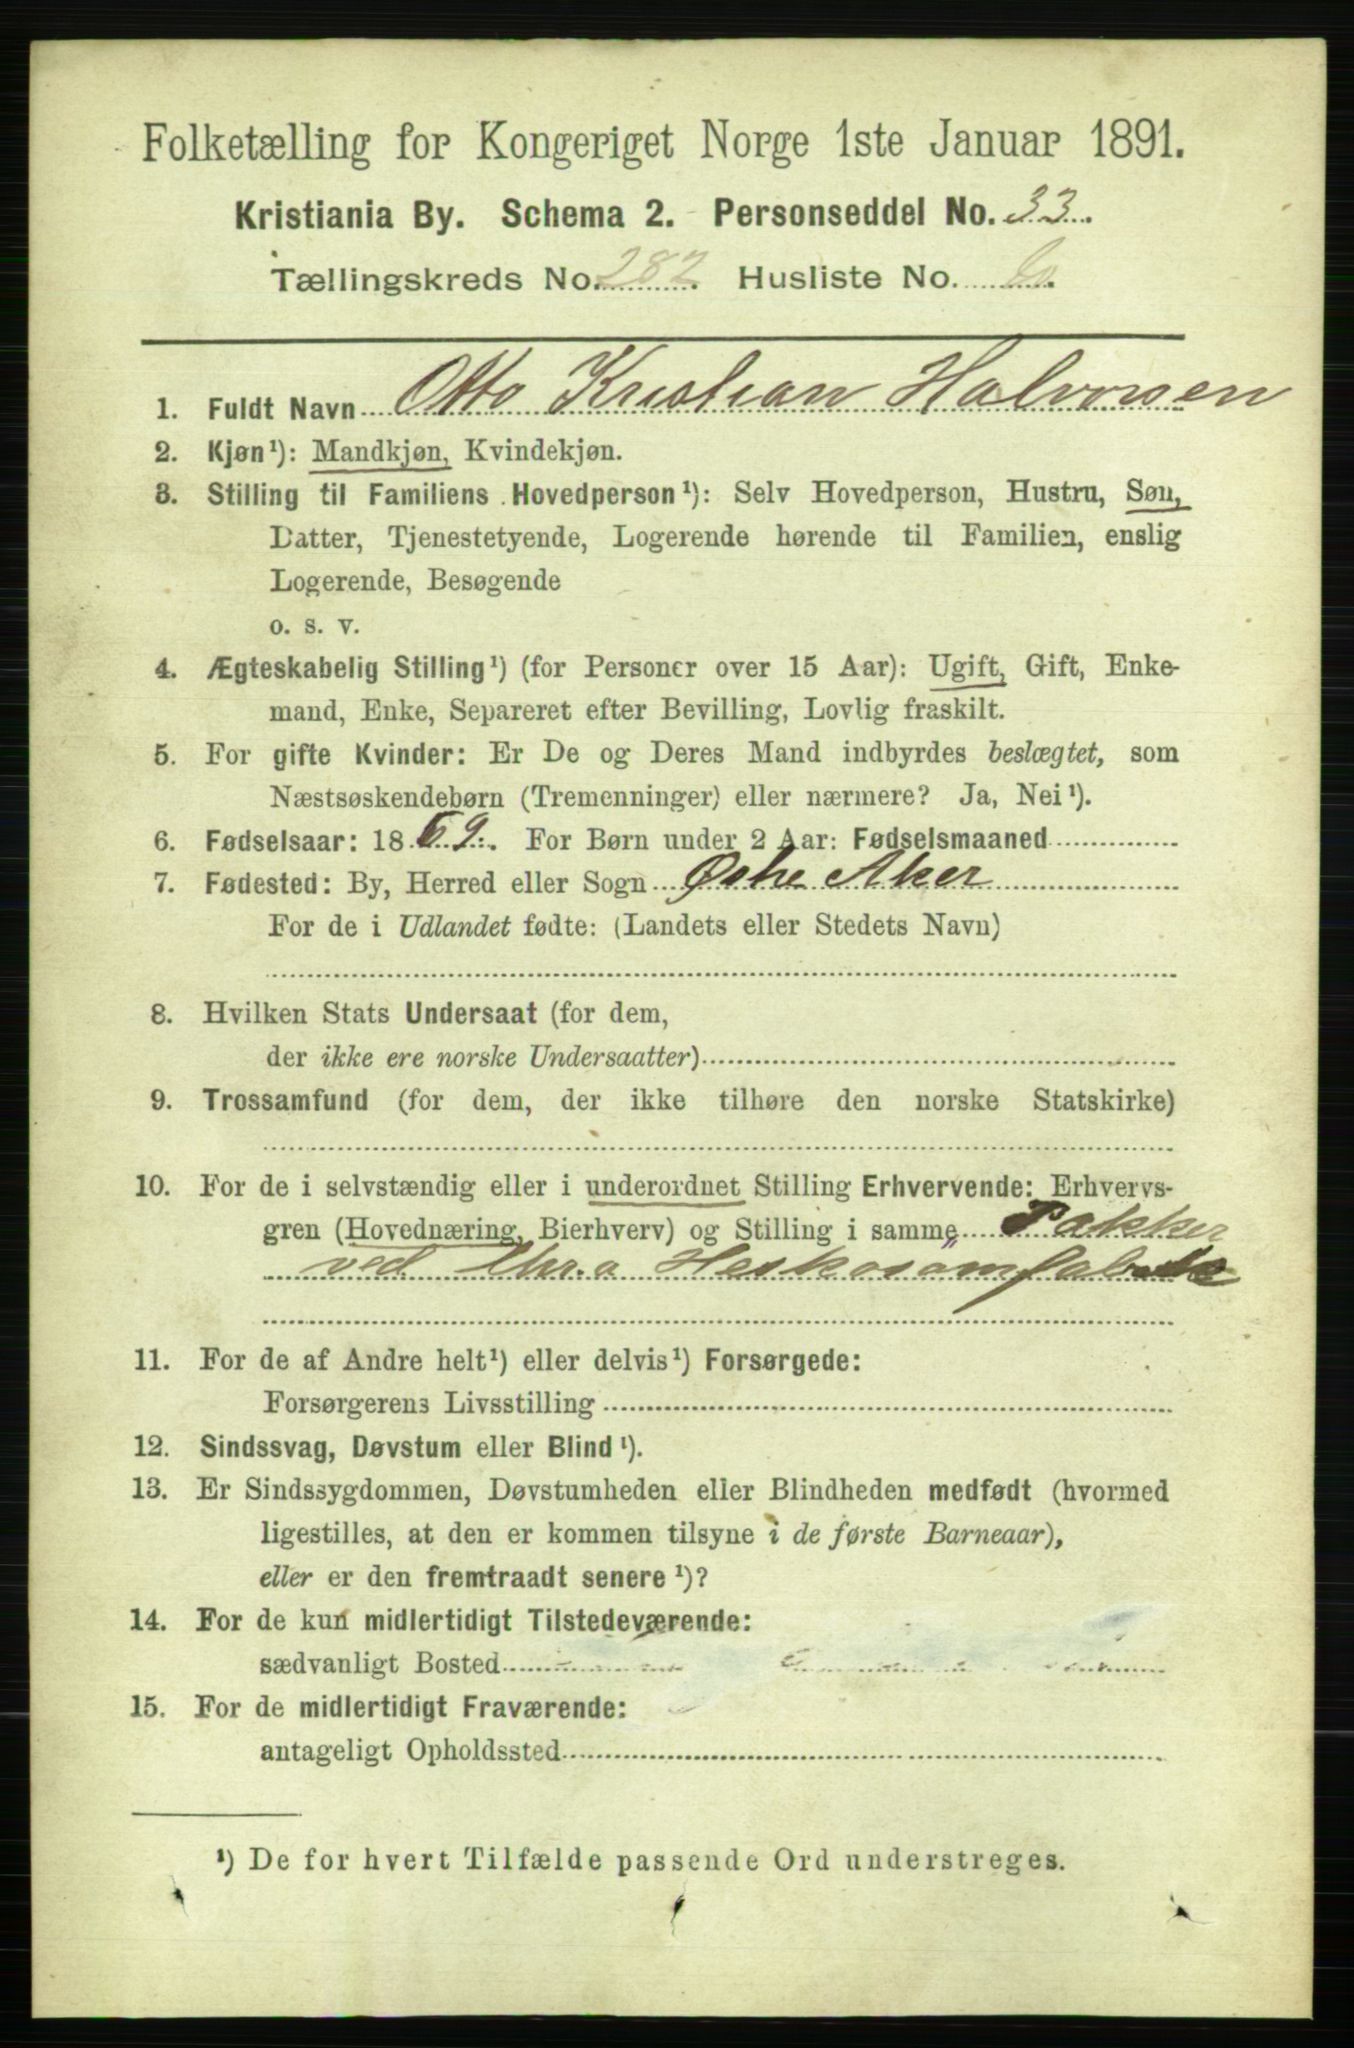 Folketælling for Kongeriget Norge 1ste Januar 1891.
Kristiania By. Schema 2. Personseddel No. 33.
Tællingskreds No. 282. Husliste No.
1. Fuldt Navn Otto Kristian Halvorsen
2. Kjøn¹): Mandkjøn, Kvindekjøn.
3. Stilling til Familiens Hovedperson¹): Selv Hovedperson, Hustru, Søn,
Datter, Tjenestetyende, Logerende hørende til Familien, enslig
Logerende, Besøgende
o. s. v.
4. Ægteskabelig Stilling¹) (for Personer over 15 Aar): Ugift, Gift, Enke-
mand, Enke, Separeret efter Bevilling, Lovlig fraskilt.
5. For gifte Kvinder: Er De og Deres Mand indbyrdes beslægtet, som
Næstsøskendebørn (Tremenninger) eller nærmere? Ja, Nei¹).
6. Fødselsaar: 1869. For Børn under 2 Aar: Fødselsmaaned
7. Fødested: By, Herred eller Sogn Østre Aker
For de i Udlandet fødte: (Landets eller Stedets Navn)
8. Hvilken Stats Undersaat (for dem,
der ikke ere norske Undersaatter)
9. Trossamfund (for dem, der ikke tilhøre den norske Statskirke)
10. For de i selvstændig eller i underordnet Stilling Erhvervende: Erhvervs-
gren (Hovednæring, Bierhverv) og Stilling i samme Pakker
ved Chr.a Heskosømfabrik
11. For de af Andre helt¹) eller delvis¹) Forsørgede:
Forsørgerens Livsstilling
12. Sindssvag, Døvstum eller Blind¹).
13. Er Sindssygdommen, Døvstumheden eller Blindheden medfødt (hvormed
ligestilles, at den er kommen tilsyne i de første Barneaar),
eller er den fremtraadt senere¹)?
14. For de kun midlertidigt Tilstedeværende:
sædvanligt Bosted
15. For de midlertidigt Fraværende:
antageligt Opholdssted
¹) De for hvert Tilfælde passende Ord understreges.